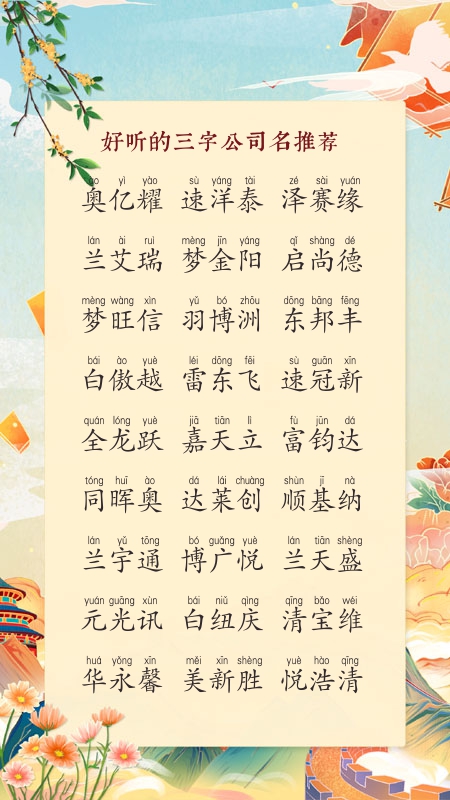 好听的三字公司名推荐
ào yì yào sù yáng tài zé sài yuán
奥亿耀 速洋泰 泽赛缘
lán ài ruì mèng jīn yáng qǐ shàng dé
兰艾瑞 梦金阳 启尚德
mèng wàng xìn yǔ bó zhōu dōng bāng fēng
梦旺信 羽博洲 东邦丰
bái ào yuè léi dōng fēi sù guān xīn
白傲越 雷东飞 速冠新
quán lóng yuè jiā tiān lì fù jūn dá
全龙跃 嘉天立 富钧达
tóng huī ào dá lái chuàng shùn jī nà
同晖奥 达莱创 顺基纳
lán yǔ tōng bó guǎng yuè lán tiān shèng
兰宇通 博广悦 兰天盛
yuán guāng xùn bái niǔ qìng qīng bǎo wéi
元光讯 白纽庆 清宝维
huá yǒng xīn měi xīn shèng yuè hào qīng
华永馨 美新胜 悦浩清